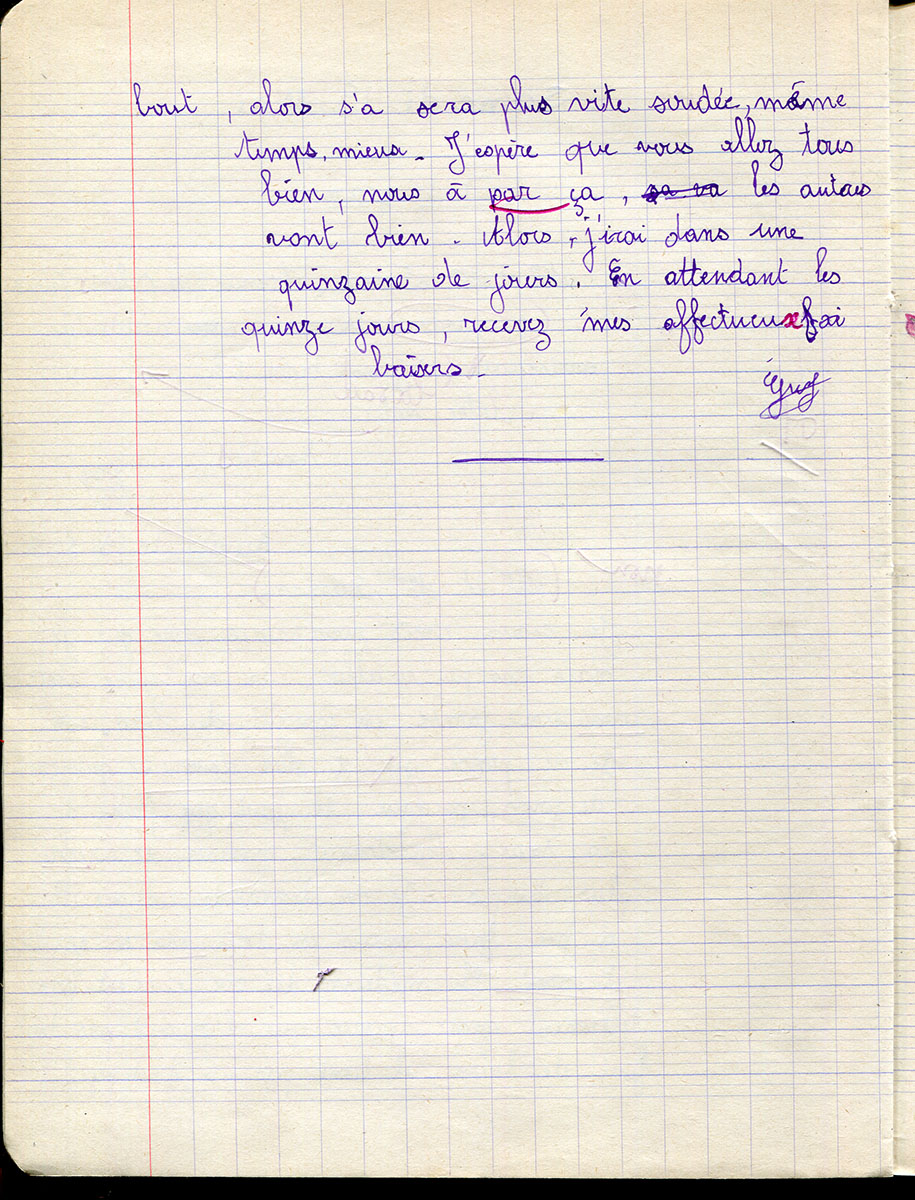 bout, alors s'a sera plus vite soudée, même
temps, mieux. J'espère que vous allez tous
bien, nous à par ça, ça va les autres
vont bien. Alors, j'irai dans une
quinzaine de jours. En attendant les
quinze jours, recevez mes affectueux
baisers.